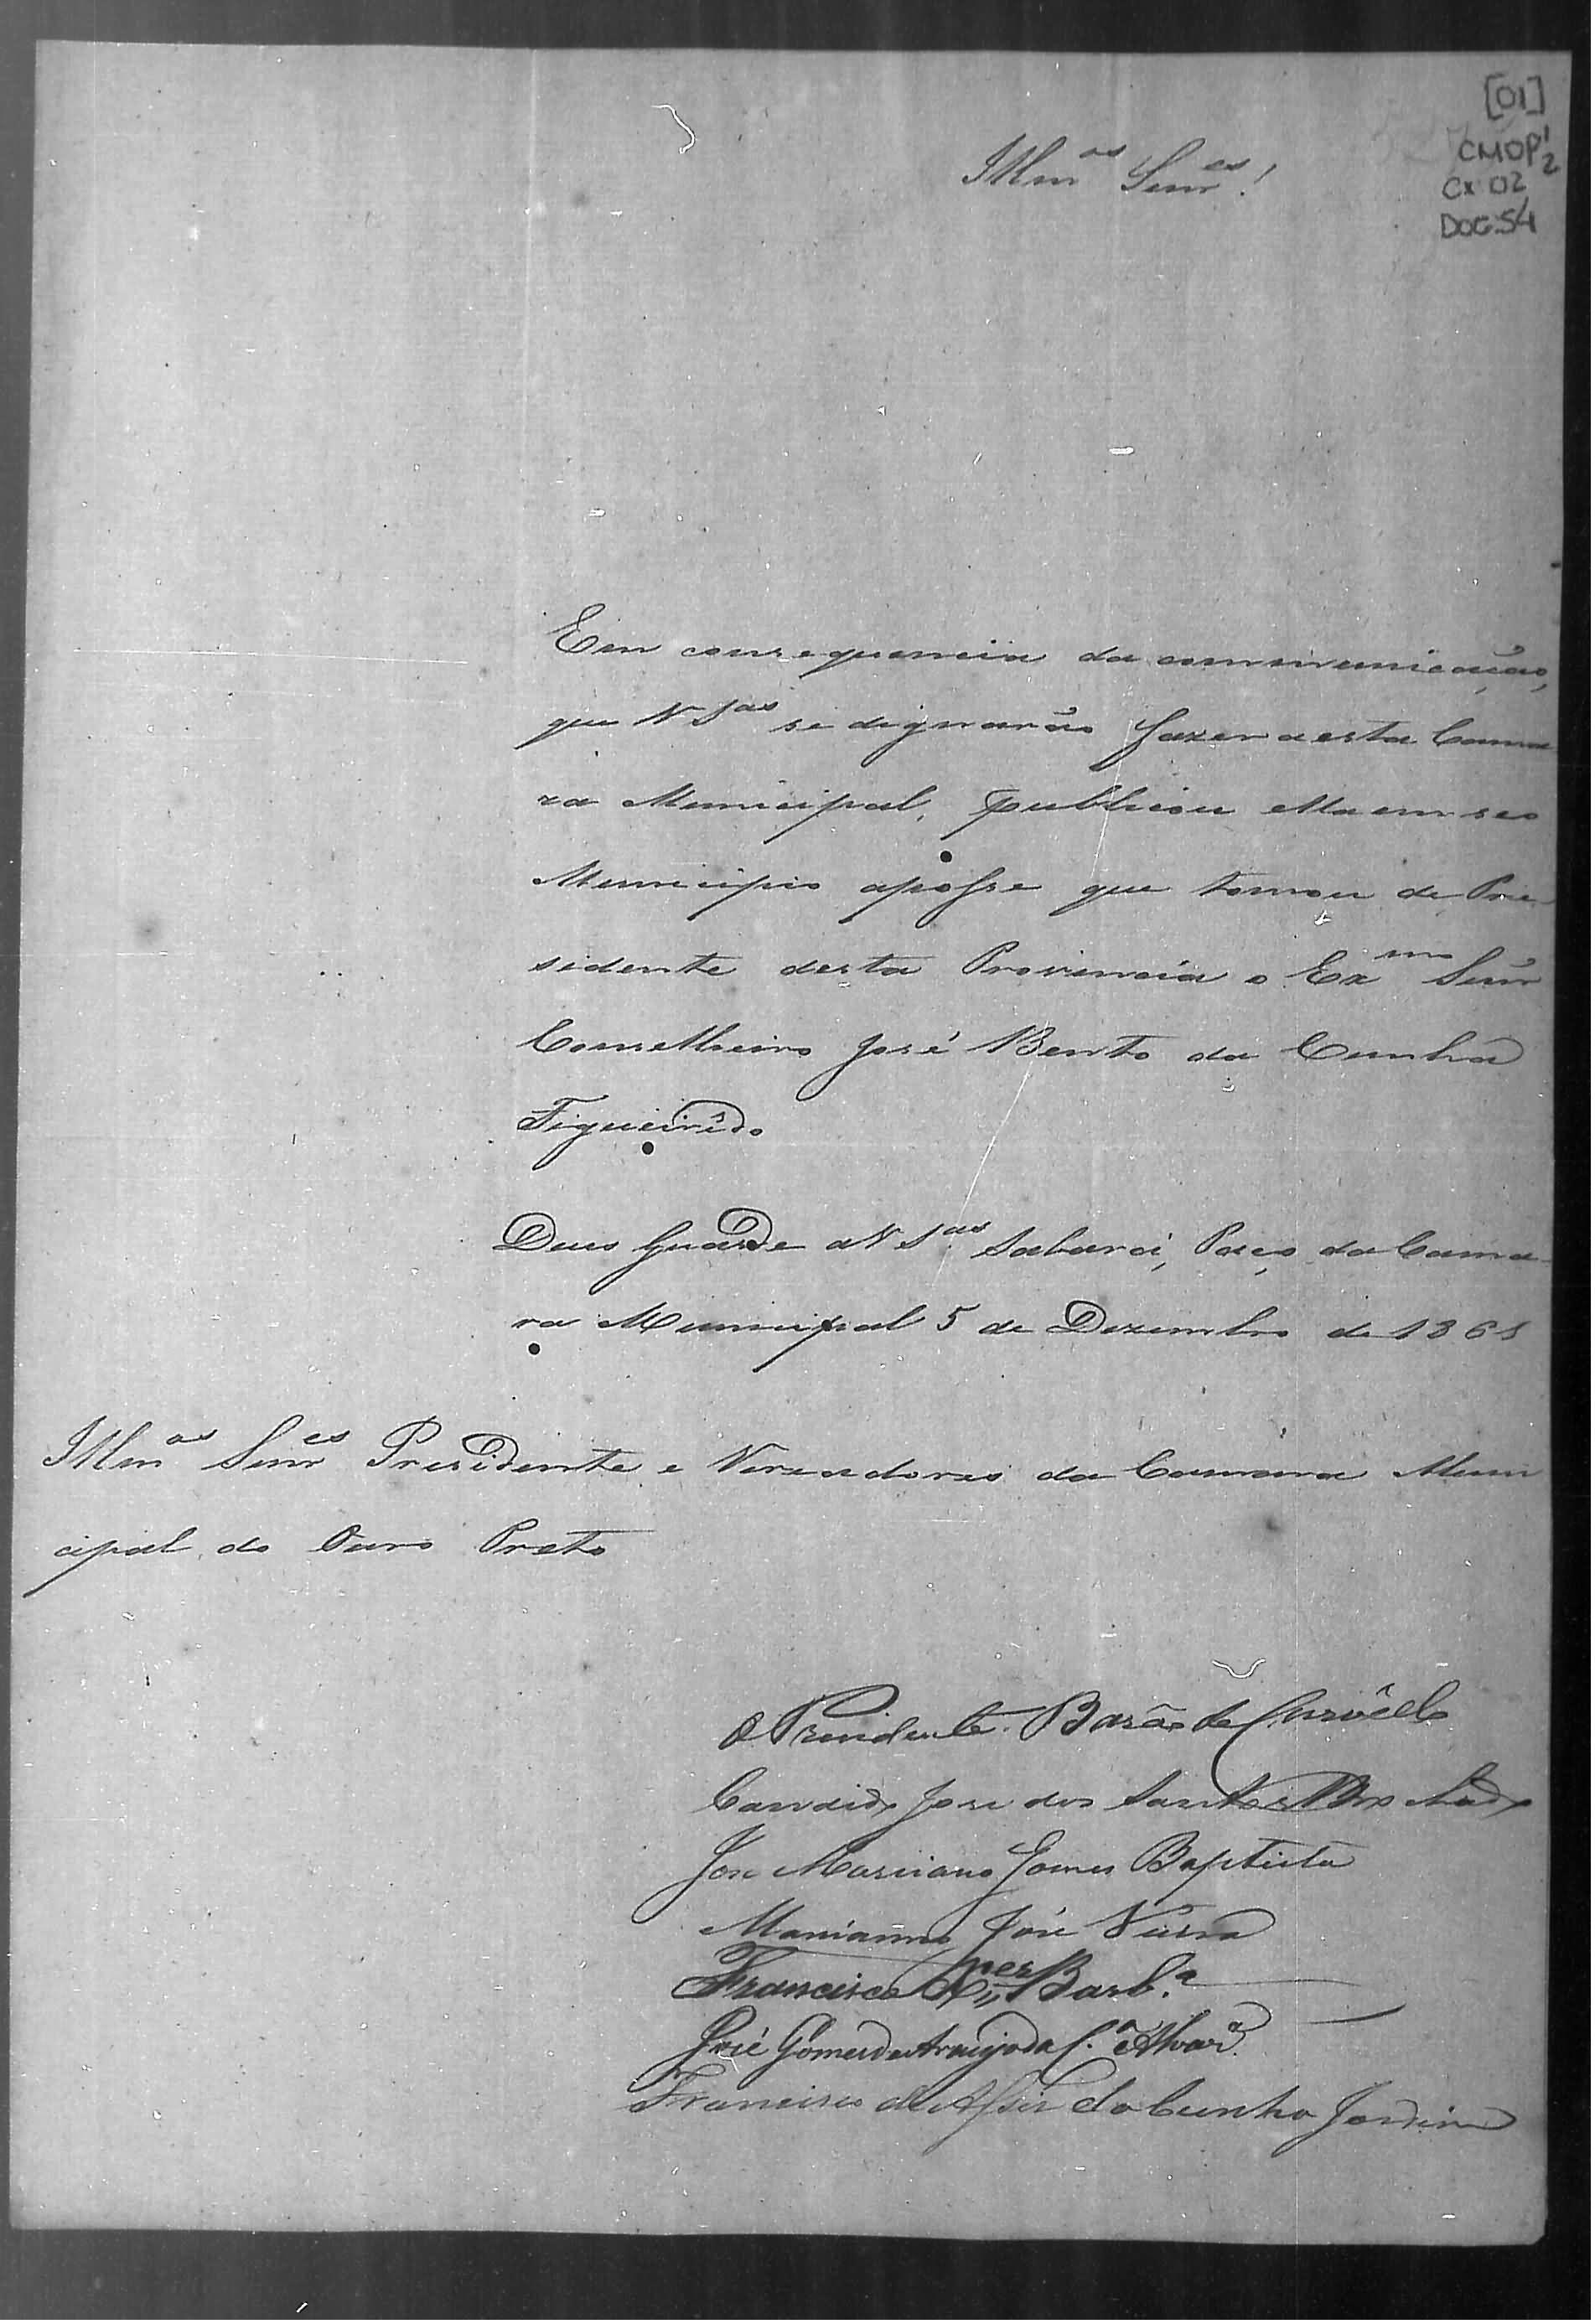 [01]
CMOP 1/2
Cx 02
DOC. 54
Illm.os Senr.es!
Em consequencia da communicação,
que V S.as se dignarão fazer a esta Cama
ra Municipal, publicou ella em seo
Municipio aposse que tomou de Pre
sidente desta Provincia o Ex.mo Senr
Conselheiro José Bento da Cunha
Figueirêdo
Deus Guarde a V S.as Sabará, Paço da Cama
ra Municipal 5 de Dezembro de 1861
Illm.os Senr.es Presidente e Vereadores da Camara Muni
cipal do Ouro Preto
O Presidente. Barão de Curvêllo
Candido José dos Santos
José Marciano Gomes Baptista
Marianno José
Francisco X.er Barb.a
José Gomes de Araujo da C.a
Francisco de Assis da Cunha Jardim